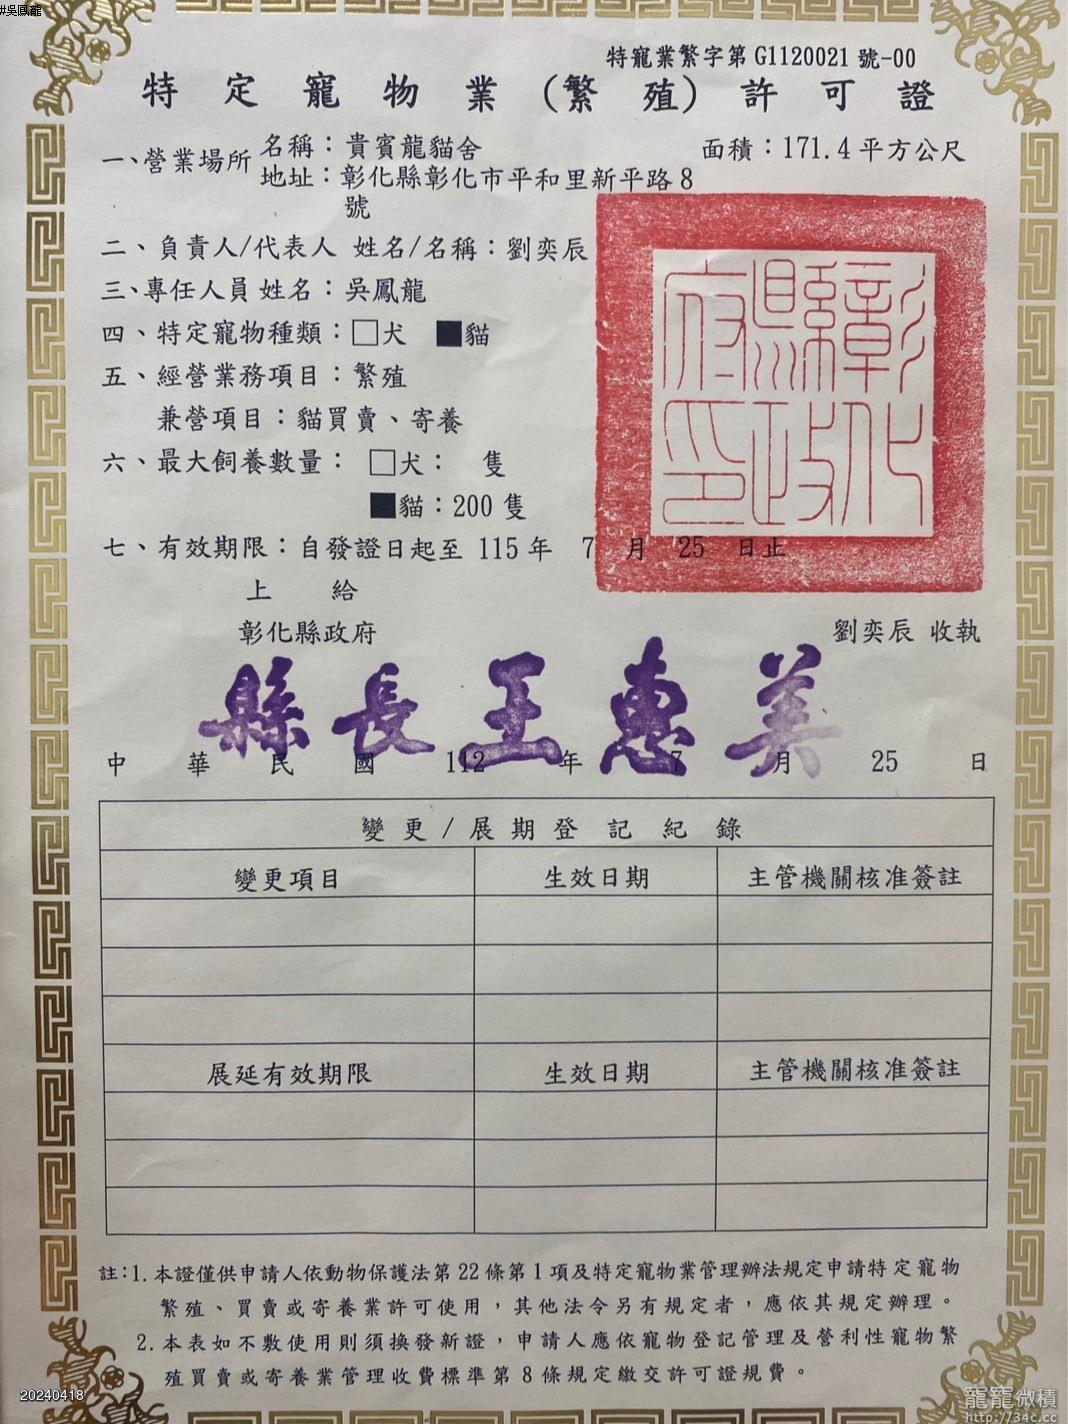 #吳鳳龍
特寵業繁字第 G1120021 號-00
特定寵物業(繁殖)許可證
一、營業場所 名稱：貴賓龍貓舍 面積：171.4 平方公尺
地址：彰化縣彰化市平和里新平路 8
號
二、負責人/代表人 姓名/名稱：劉奕辰
三、專任人員 姓名：吳鳳龍
四、特定寵物種類：□犬 ■貓
五、經營業務項目：繁殖
兼營項目：貓買賣、寄養
六、最大飼養數量： □犬： 隻
■貓：200 隻
七、有效期限：自發證日起至 115 年 7 月 25 日止
彰化縣政府印
上 給
彰化縣政府 劉奕辰 收執
縣長王惠美
中華民國 112 年 7 月 25 日
變更/展期登記紀錄
變更項目 生效日期 主管機關核准簽註
展延有效期限 生效日期 主管機關核准簽註
註：1.本證僅供申請人依動物保護法第 22 條第 1 項及特定寵物業管理辦法規定申請特定寵物
繁殖、買賣或寄養業許可使用，其他法令另有規定者，應依其規定辦理。
2.本表如不敷使用則須換發新證，申請人應依寵物登記管理及營利性寵物繁
殖買賣或寄養業管理收費標準第 8 條規定繳交許可證規費。
20240418
寵寵微積
http://34c.cc